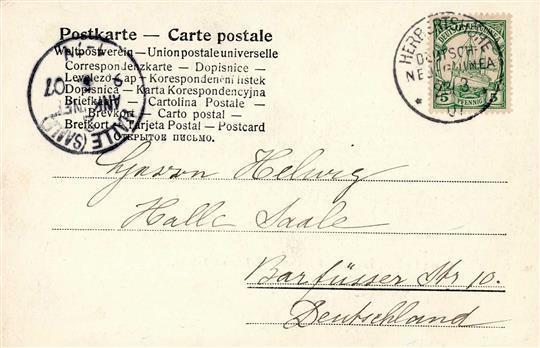 Postkarte — Carte postale
Weltpostverein — Union postale universelle
Correspondenzkarte — Dopisnice —
Levelező-Lap — Korespondenční lístek
Dopisnica — Karta Korespondencyjna
Briefkaart — Cartolina Postale —
Brevkort — Carto postal —
Brefkort — Tarjeta Postal — Postcard
Открытое письмо.
HALLE (SAALE)
07
HERBERTSHÖHE
DEUTSCH-
NEU-GUINEA
07
5 PFENNIG 5
Herrn Helwig
Halle Saale
Barfüsser Str 10.
Deutschland